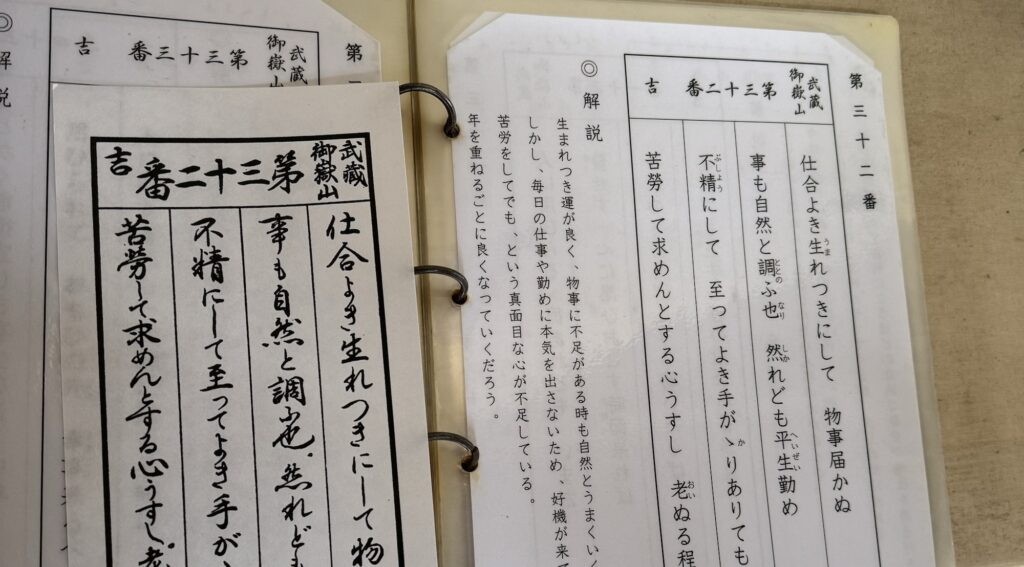 第三十二番
武蔵
御嶽山
第三十二番
吉
仕合よき生れつきにして 物事届かぬ
事も自然と調ふ也 然れども平生勤め
不精にして 至ってよき手がゝりありても
苦勞して求めんとする心うすし 老ぬる程
◎解説
生まれつき運が良く、物事に不足がある時も自然とうまくいく
しかし、毎日の仕事や勤めに本気を出さないため、好機が来て
苦労をしてでも、という真面目な心が不足している。
年を重ねるごとに良くなっていくだろう。
武蔵
御嶽山
第三十二番
吉
仕合よき生れつきにして 物
事も自然と調ふ也。然れども
不精にして至ってよき手が
苦勞して求めんとする心うすし 老
第
武蔵
御嶽山
第三十三番
吉
◎解説